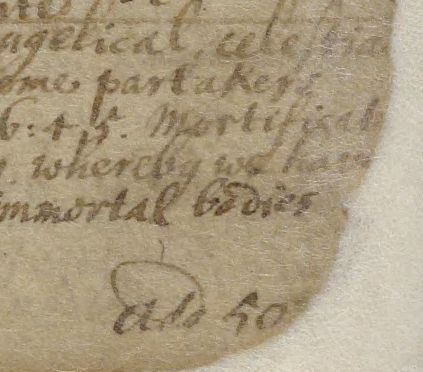 agelical, celestial
ome partakers
6: 4, 5. Mortificati
whereby we have
immortal bodies
also 50